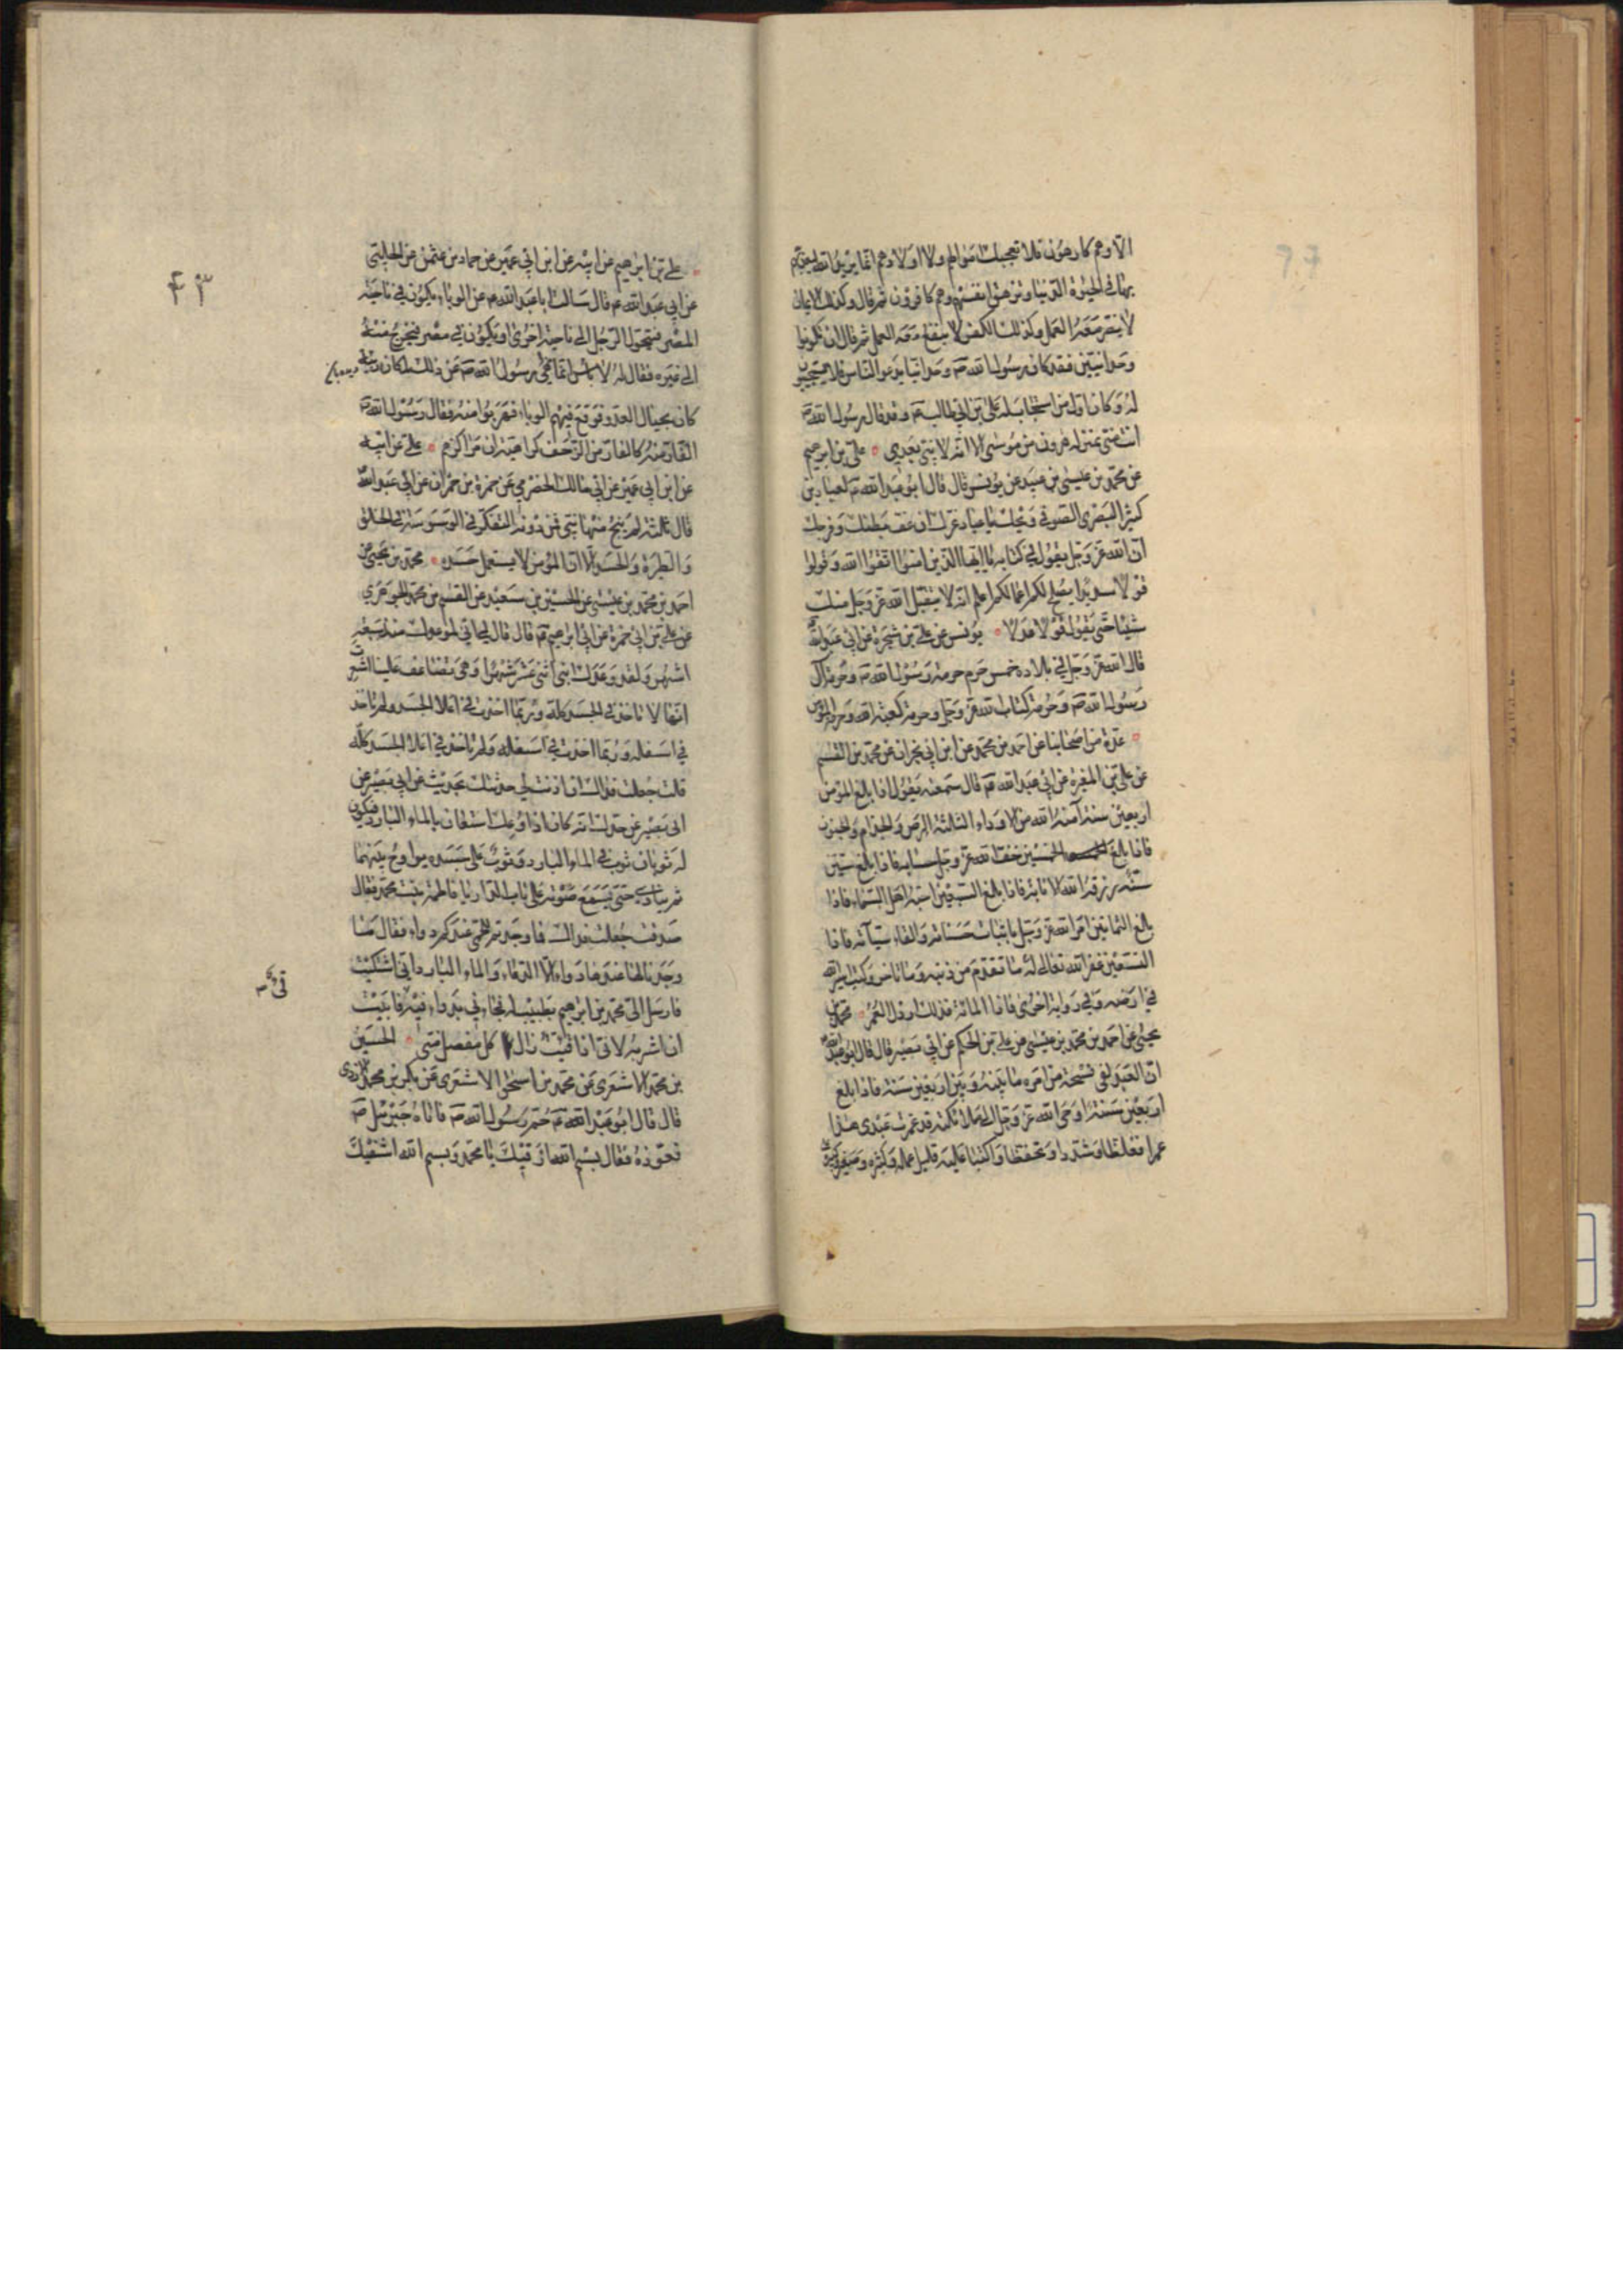 الا وهم كارهون فلا تعجبك اموالهم ولا اولادهم انما يريد الله ليعذبهم
بها في الحيوة الدنيا وتزهق انفسهم وهم كافرون ثم قال وكذلك الايمان
لا يضر معه العمل وكذلك الكفر لا ينفع معه العمل ثم قال ان تكونوا
وحدانيين فقد كان رسول الله ص وحدانيا يدعو الناس فلا يستجيبون
له وكان اول من استجاب له علي بن ابي طالب ع وقد قال رسول الله ص
انت مني بمنزلة هرون من موسى الا انه لا نبي بعدي علي بن ابرهيم
عن محمد بن عيسى بن عبيد عن يونس قال قال ابو عبد الله ع لعباد بن
كثير البصري الصوفي ويحك يا عباد غرك ان عف بطنك وفرجك
ان الله عز وجل يقول في كتابه يا ايها الذين امنوا اتقوا الله وقولوا
قولا سديدا يصلح لكم اعمالكم اعلم انه لا يتقبل الله عز وجل منك
شيئا حتى تقول قولا عدلا يونس عن علي بن شجرة عن ابي عبد الله
قال لله عز وجل في بلاده خمس حرم حرمة رسول الله ص وحرمة آل
رسول الله ص وحرمة كتاب الله عز وجل وحرمة كعبة الله وحرمة المؤمن
عدة من اصحابنا عن احمد بن محمد عن ابن ابي نجران عن محمد بن القسم
عن علي بن المغيرة عن ابي عبد الله ع قال سمعته يقول اذا بلغ المؤمن
اربعين سنة آمنه الله من الادواء الثلثة البرص والجذام والجنون
فاذا بلغ الخمسين خفف الله عز وجل حسابه فاذا بلغ ستين
سنة رزقه الله الانابة فاذا بلغ السبعين احبه اهل السماء فاذا
بلغ الثمانين امر الله عز وجل باثبات حسناته والقاء سيآته فاذا
التسعين غفر الله تعالى له ما تقدم من ذنبه وما تاخر وكتب اسير الله
في ارضه وفي رواية اخرى فاذا المائة فذلك ارذل العمر محمد بن
يحيى عن احمد بن محمد بن عيسى عن علي بن الحكم عن ابي بصير قال قال ابو عبد الله
ان العبد لفي فسحة من امره ما بينه وبين اربعين سنة فاذا بلغ
اربعين سنة اوحى الله عز وجل الى ملائكته قد عمرت عبدي هذا
عمرا فغلظا وشددا وتحفظا واكتبا عليه قليل عمله وكثيره وصغيره وكبيره
۴۳
علي بن ابرهيم عن ابيه عن ابن ابي عمير عن حماد بن عثمن عن الحلبي
عن ابي عبد الله ع قال سالت ابا عبد الله ع عن الوباء يكون في ناحية
المصر فيتحول الرجل الى ناحية اخرى او يكون في مصر فيخرج منه
الى غيره فقال له لا باس انما نهى رسول الله ص عن ذلك لمكان ربيئة
كان بحيال العدو فوقع فيهم الوباء فهربوا منه فقال رسول الله ص
الفار منه كالفار من الزحف كراهية ان مراكزهم علي عن ابيه
عن ابن ابي عمير عن ابي مالك الحضرمي عن حمزة بن حمران عن ابي عبد الله
قال ثلثة لم ينج منها نبي فمن دونه التفكر في الوسوسة في الخلق
والطيرة والحسد الا ان المؤمن لا يستعمل حسده محمد بن يحيى عن
احمد بن محمد بن عيسى عن الحسين بن سعيد عن القسم بن محمد الجوهري
عن علي بن ابي حمزة عن ابي ابرهيم ع قال قال لي اني لموعوك منذ سبعة
اشهر ولقد وعك ابني اثني عشر شهرا وهي تضاعف علينا اشعرت
انها لا تاخذ في الجسد كله وربما اخذت في اعلا الجسد ولم تاخذ
في اسفله وربما اخذت في اسفله ولم تاخذ في اعلا الجسد كله
قلت جعلت فداك ان اذنت لي حدثتك بحديث عن ابي بصير عن
ابي بصير عن جدك انه كان اذا وعك استغاث بالماء البارد فيكون
له ثوبان ثوب في الماء البارد وثوب على جسده يراوح بينهما
ثم ينادي حتى يسمع صوته على باب الدار يا فاطمة بنت محمد فقال
صدقت جعلت فداك فما وجدتم للحمى عندكم دواء فقال ما
وجدنا لها عندنا دواء الا الدعاء والماء البارد اني اشتكيت
فارسل الي محمد بن ابرهيم بطبيب له فجاءني بدواء فيه فابيت
قئ
ان اشربه لاني اذا قيئت زال كل مفصل مني الحسين
بن محمد الاشعري عن محمد بن اسحق الاشعري عن بكر بن محمد الازدي
قال قال ابو عبد الله ع حم رسول الله ص فاتاه جبرئيل ع
فعوذه فقال بسم الله ارقيك يا محمد وبسم الله اشفيك